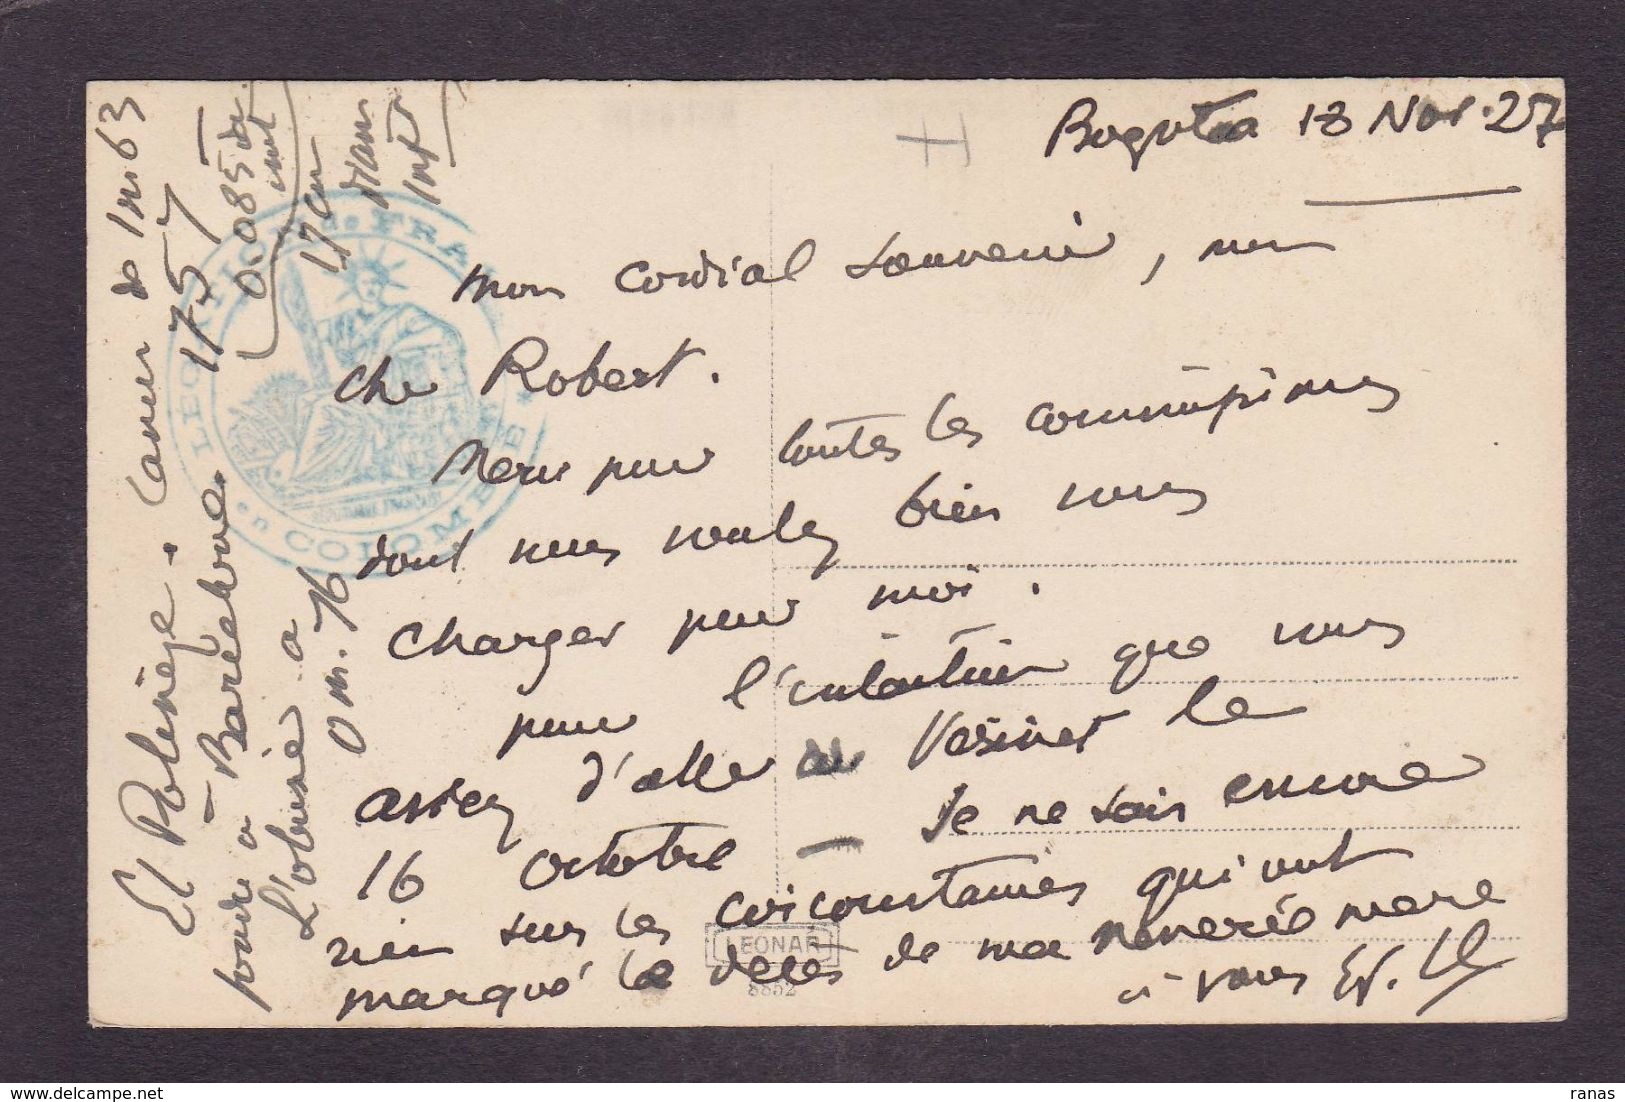 Bogota 18 Nov. 27
Mon cordial souvenir, mon
cher Robert.
Merci pour toutes les commissions
dont vous voulez bien vous
charger pour moi.
pour l'intention que vous
aviez d'aller au Vésinet le
16 octobre — Je ne sais encore
rien sur les circonstances qui ont
marqué le décès de ma vénérée mère
à vous
El Polinege. Canon de 1m.63
à Barcelone 1757
0.085 de
L'obusier a 0m.76
17 cm
diam
int
LEGATION de FRANCE
en COLOMBIE
LEONAR
8852
ranas